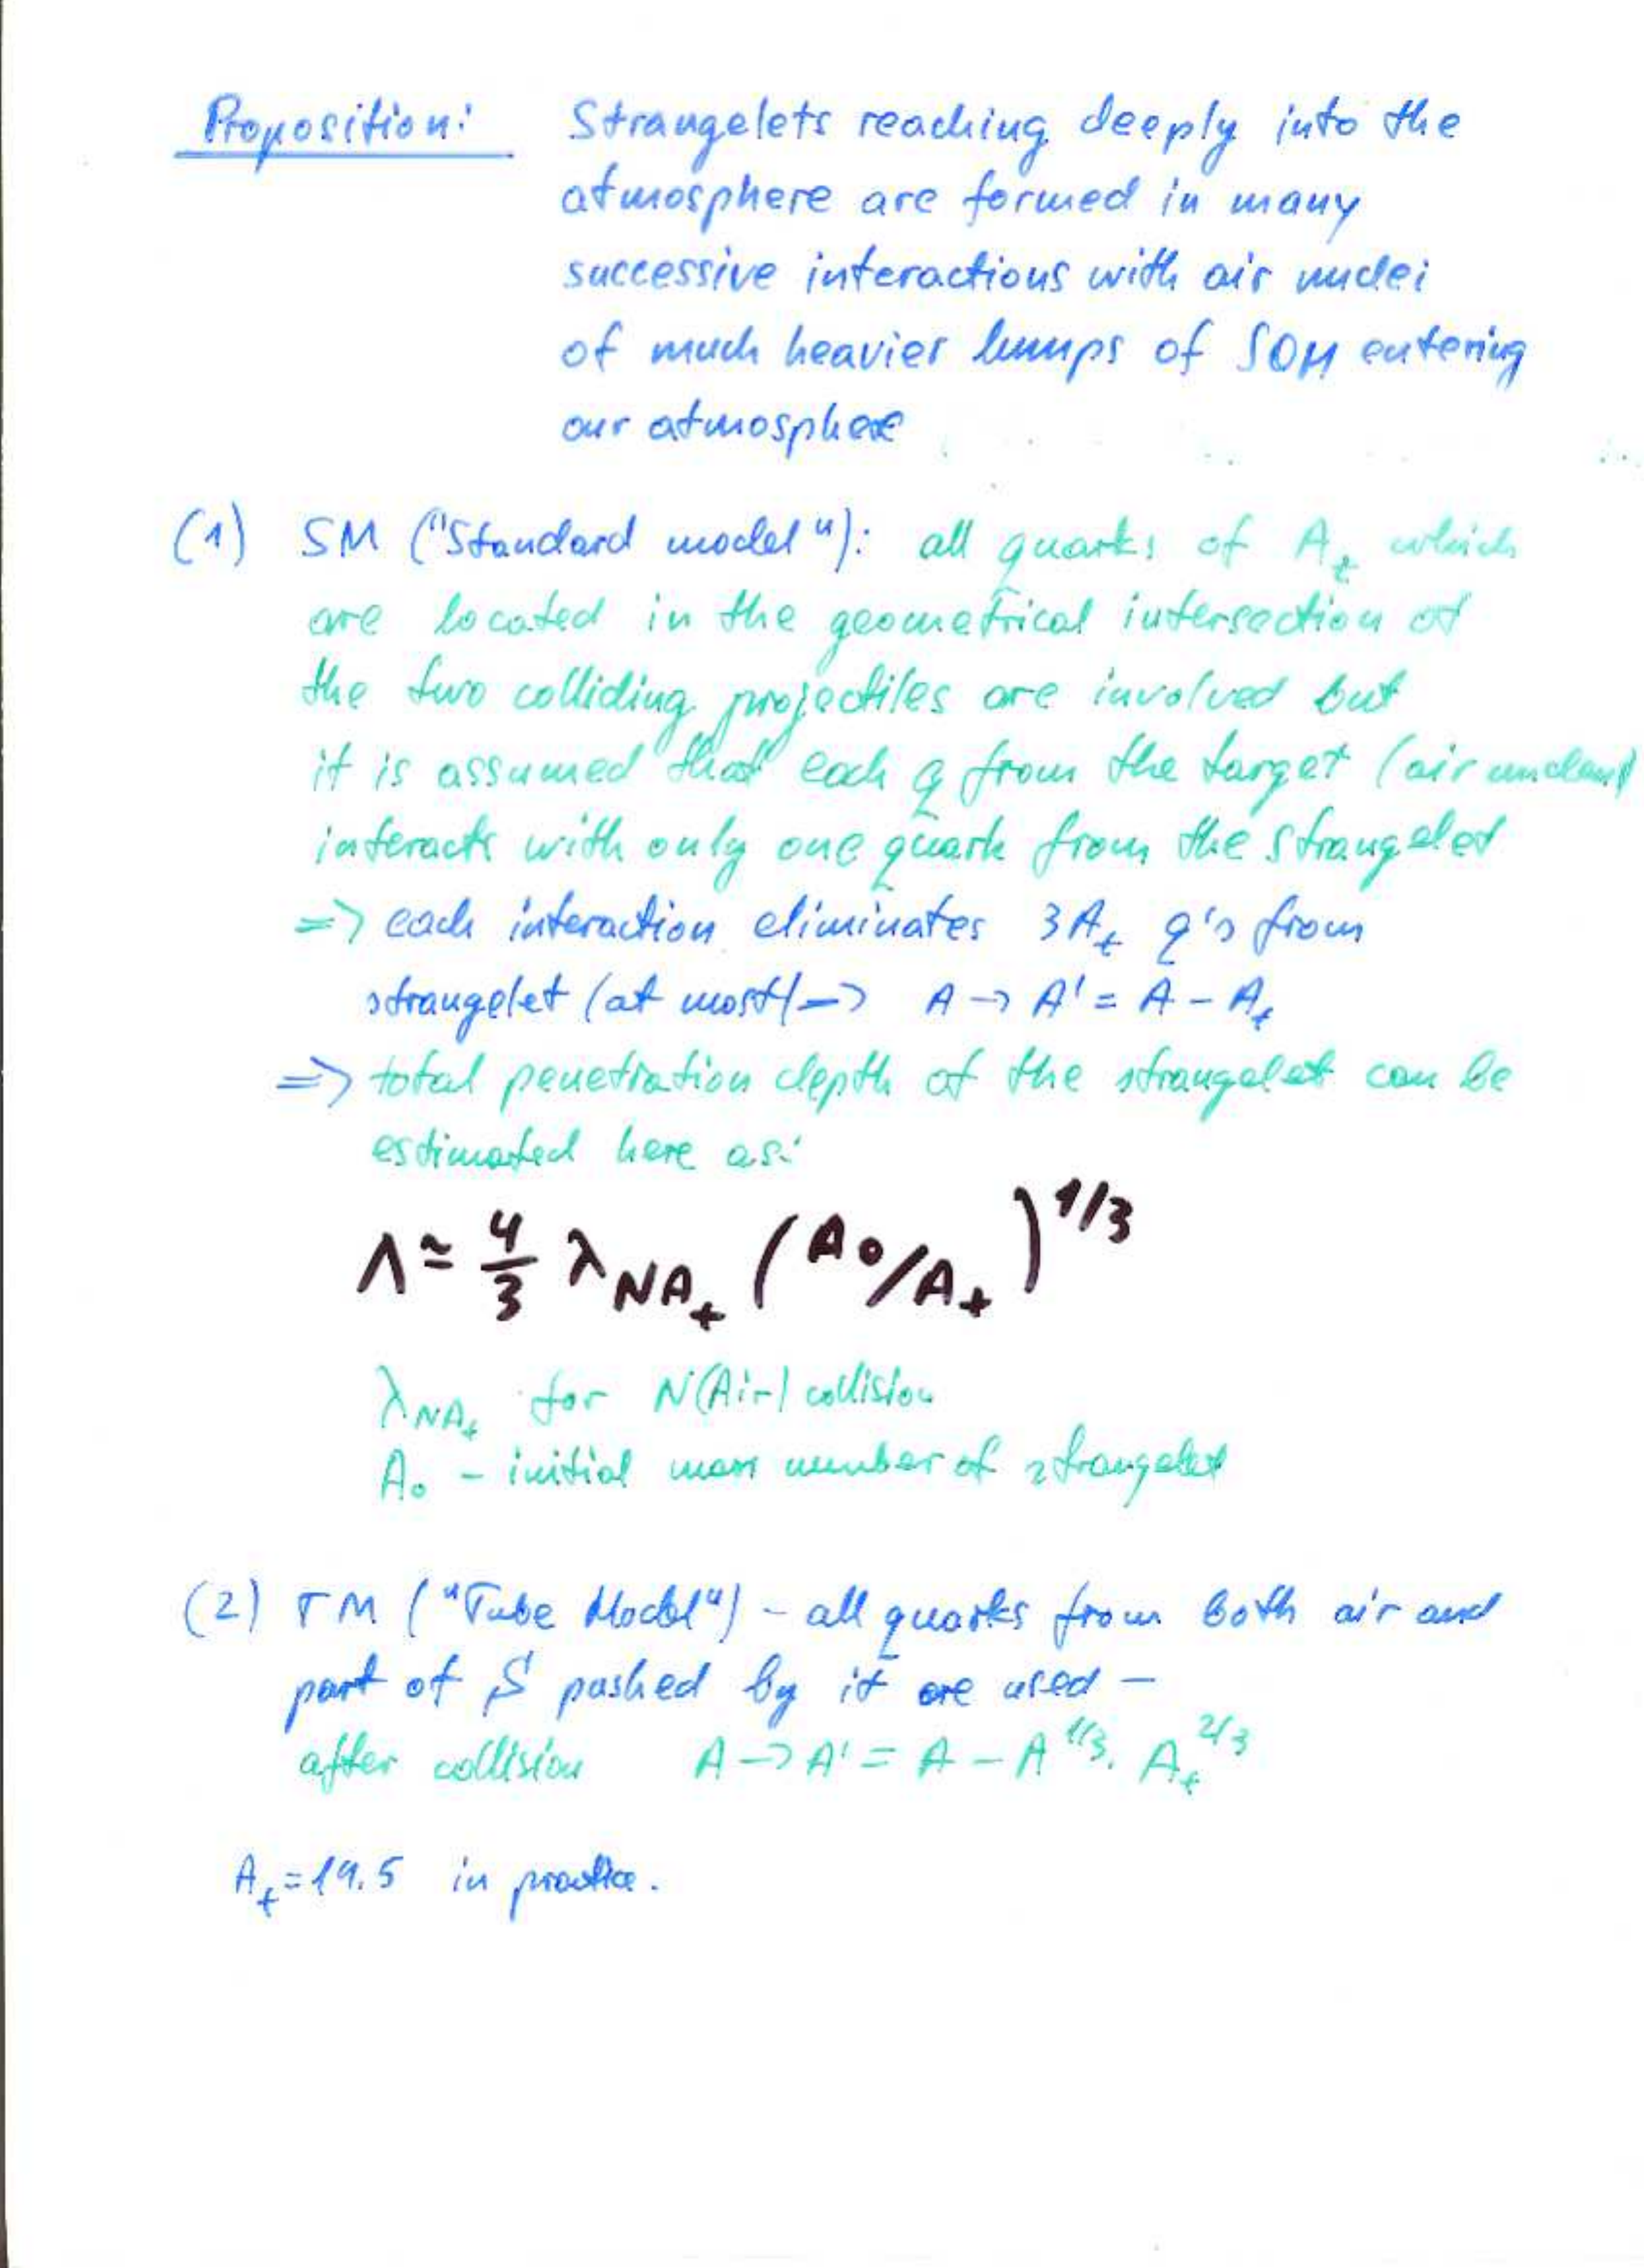 Proposition: Strangelets reaching deeply into the
atmosphere are formed in many
successive interactions with air nuclei
of much heavier lumps of SQM entering
our atmosphere
(1) SM ("Standard model"): all quarks of Aₜ which
are located in the geometrical intersection of
the two colliding projectiles are involved but
it is assumed that each q from the target (air
interacts with only one quark from the strangelet
=> each interaction eliminates 3Aₜ q's from
strangelet (at most) -> A -> A' = A - Aₜ
=> total penetration depth of the strangelet can be
estimated here as:
Λ ≃ 4/3 λ_{NAₜ} (A₀/Aₜ)^{1/3}
λ_{NAₜ} for N(Air) collision
A₀ - initial mass number of strangelet
(2) TM ("Tube Model") - all quarks from both air and
part of S pushed by it are used -
after collision A -> A' = A - A^{1/3} · Aₜ^{2/3}
Aₜ = 14.5 in practice.